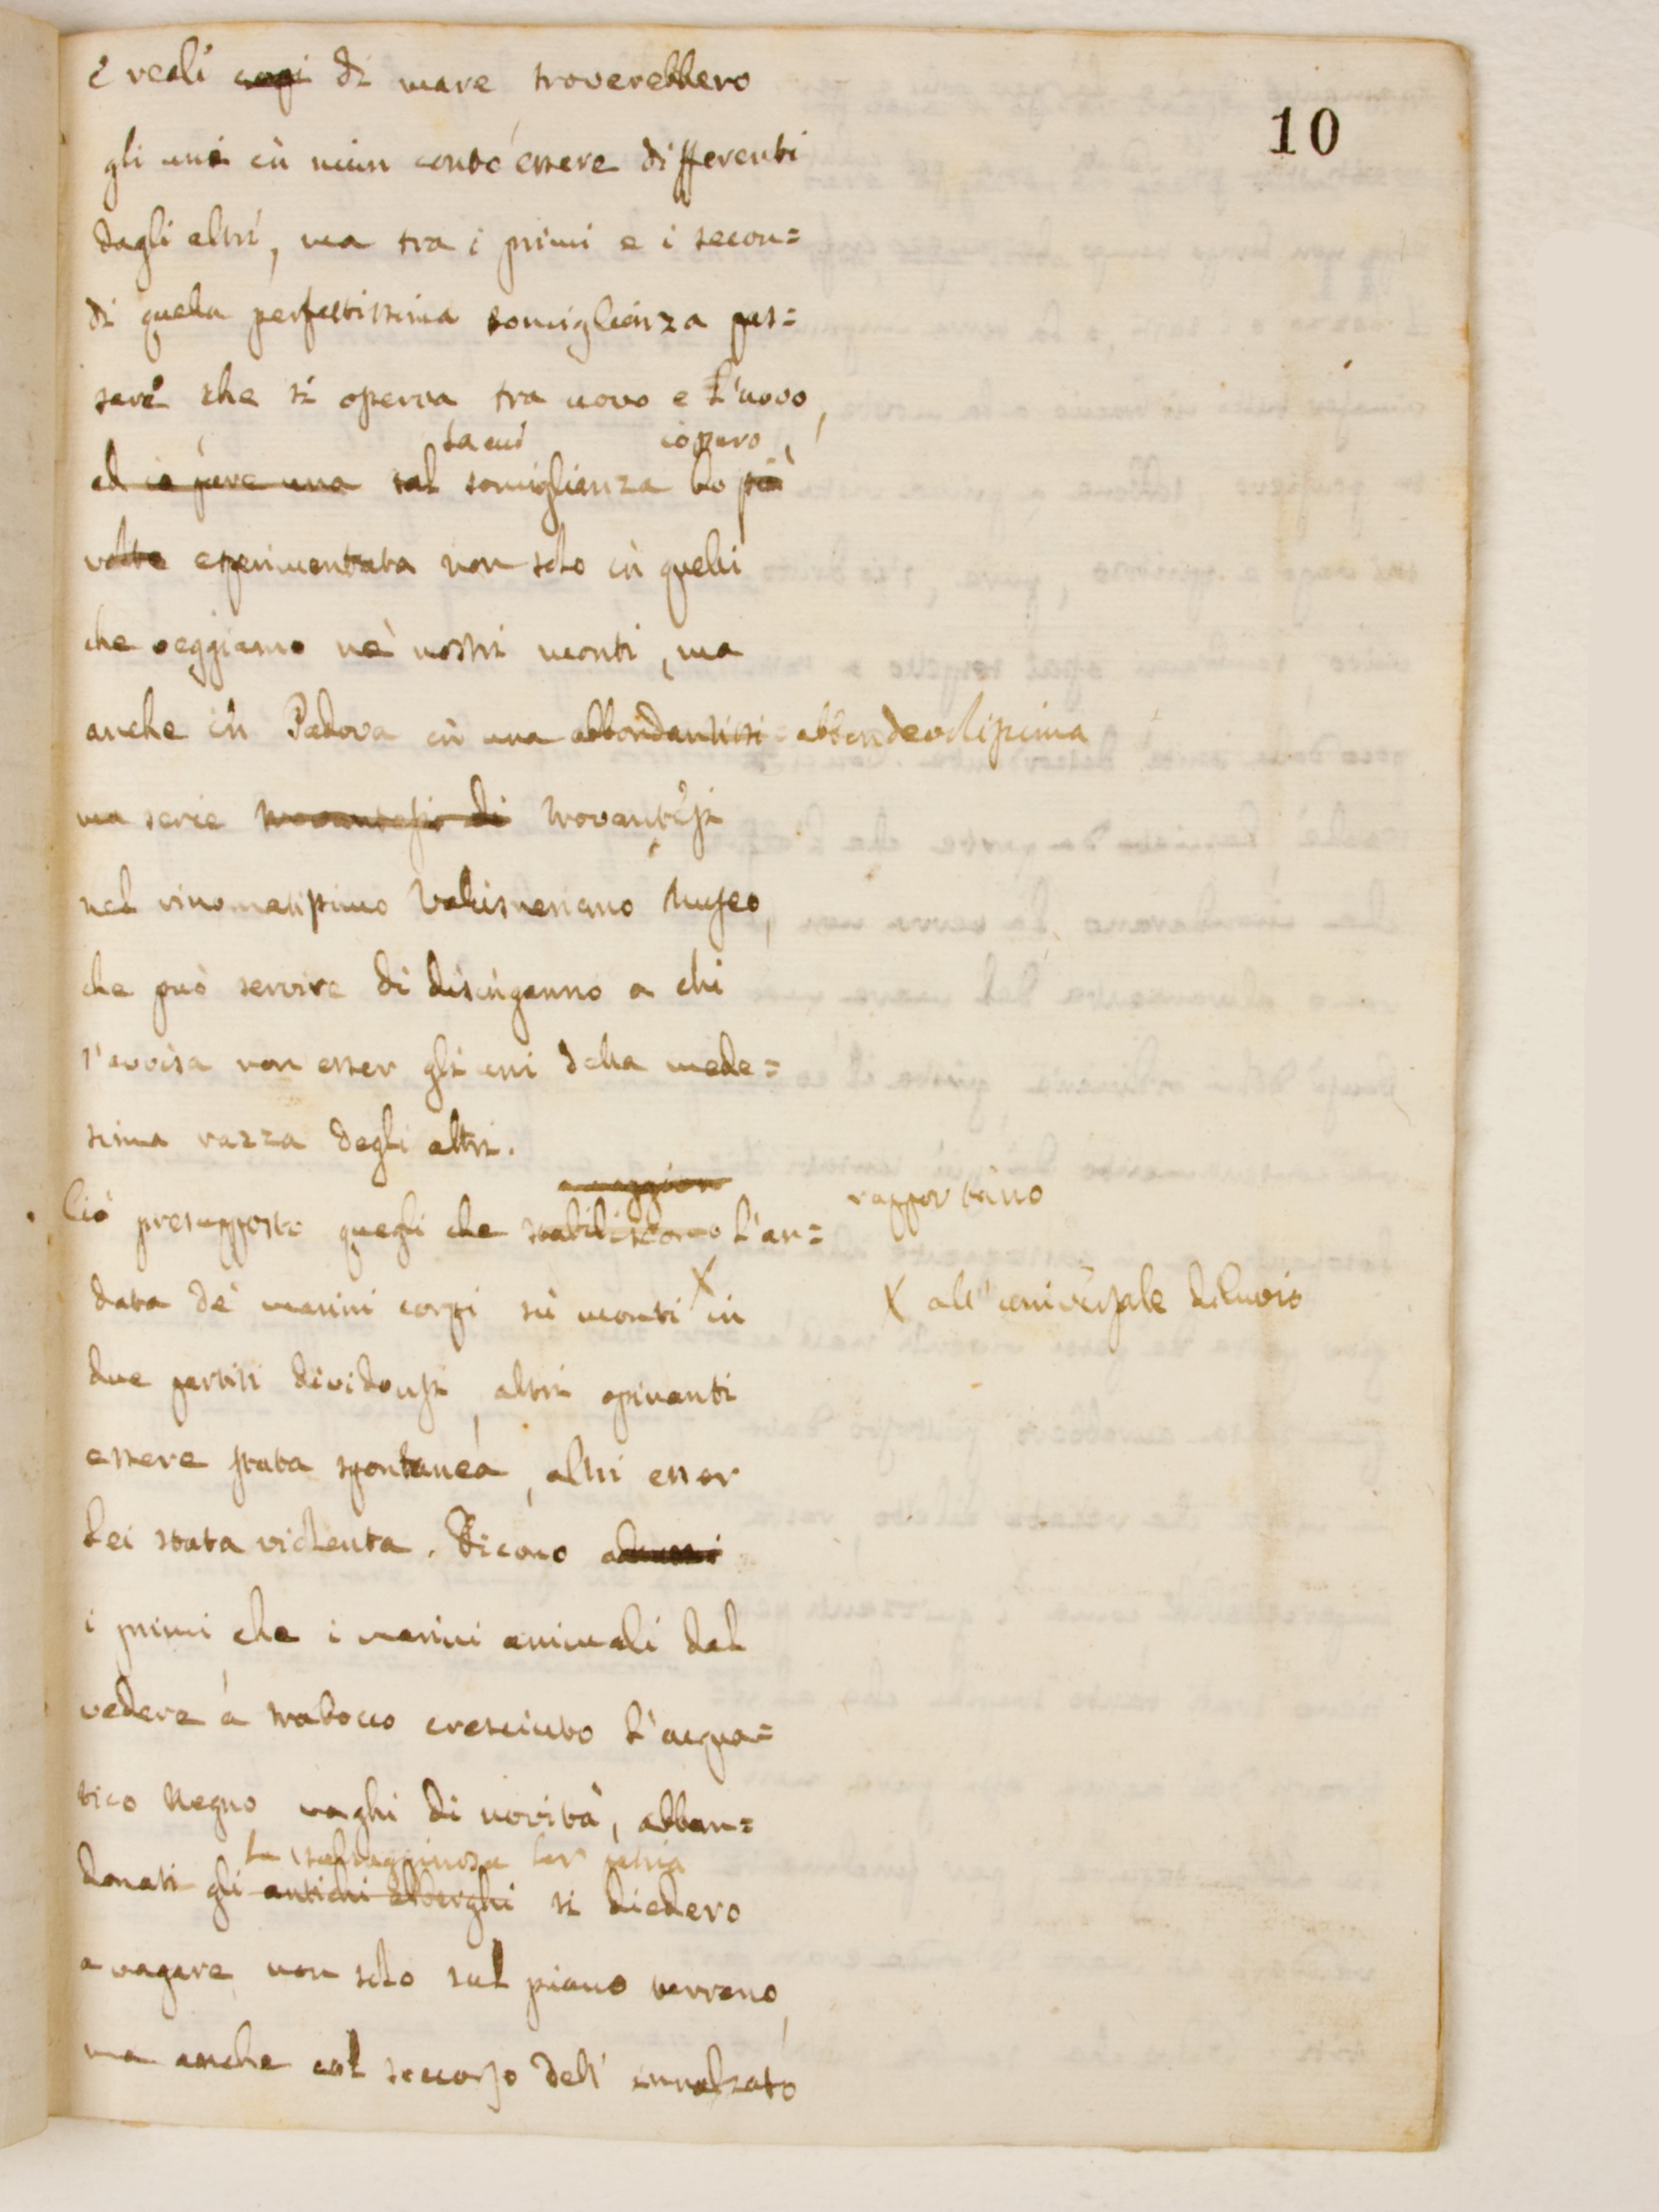 10
e reali corpi di mare troverebbero
gli uni in niun conto essere differenti
dagli altri, ma tra i primi e i secon=
di quella perfettissima somiglianza pas=
sare che si osserva tra uovo e l'uovo,
la cui io pure
ed io pure una tal somiglianza ho più
volte esperimentata non solo in quelli
che veggiamo ne' nostri monti, ma
anche in Padova in una abbondantissi= abbondevolissima
ma serie trovantesi di trovantesi
nel rinomatissimo Valisneriano Museo,
che può servire di disinganno a chi
s'avvisa non esser gli uni della mede=
sima razza degli altri.
Ciò presupposto quegli che stabiliscono l'an= rapportano
data de' marini corpi su monti X in X all'universale diluvio
due partiti dividonsi, altri opinanti
essere stata spontanea, altri esser
lei stata violenta. Dicono
i primi che i marini animali dal
vedere a trabocco cresciuto l'acqua=
tico Regno vaghi di novità, abban=
la salsugginosa lor patria
donati gli antichi alberghi si diedero
a vagare non solo sul piano terreno,
ma anche col soccorso dell' innalzato